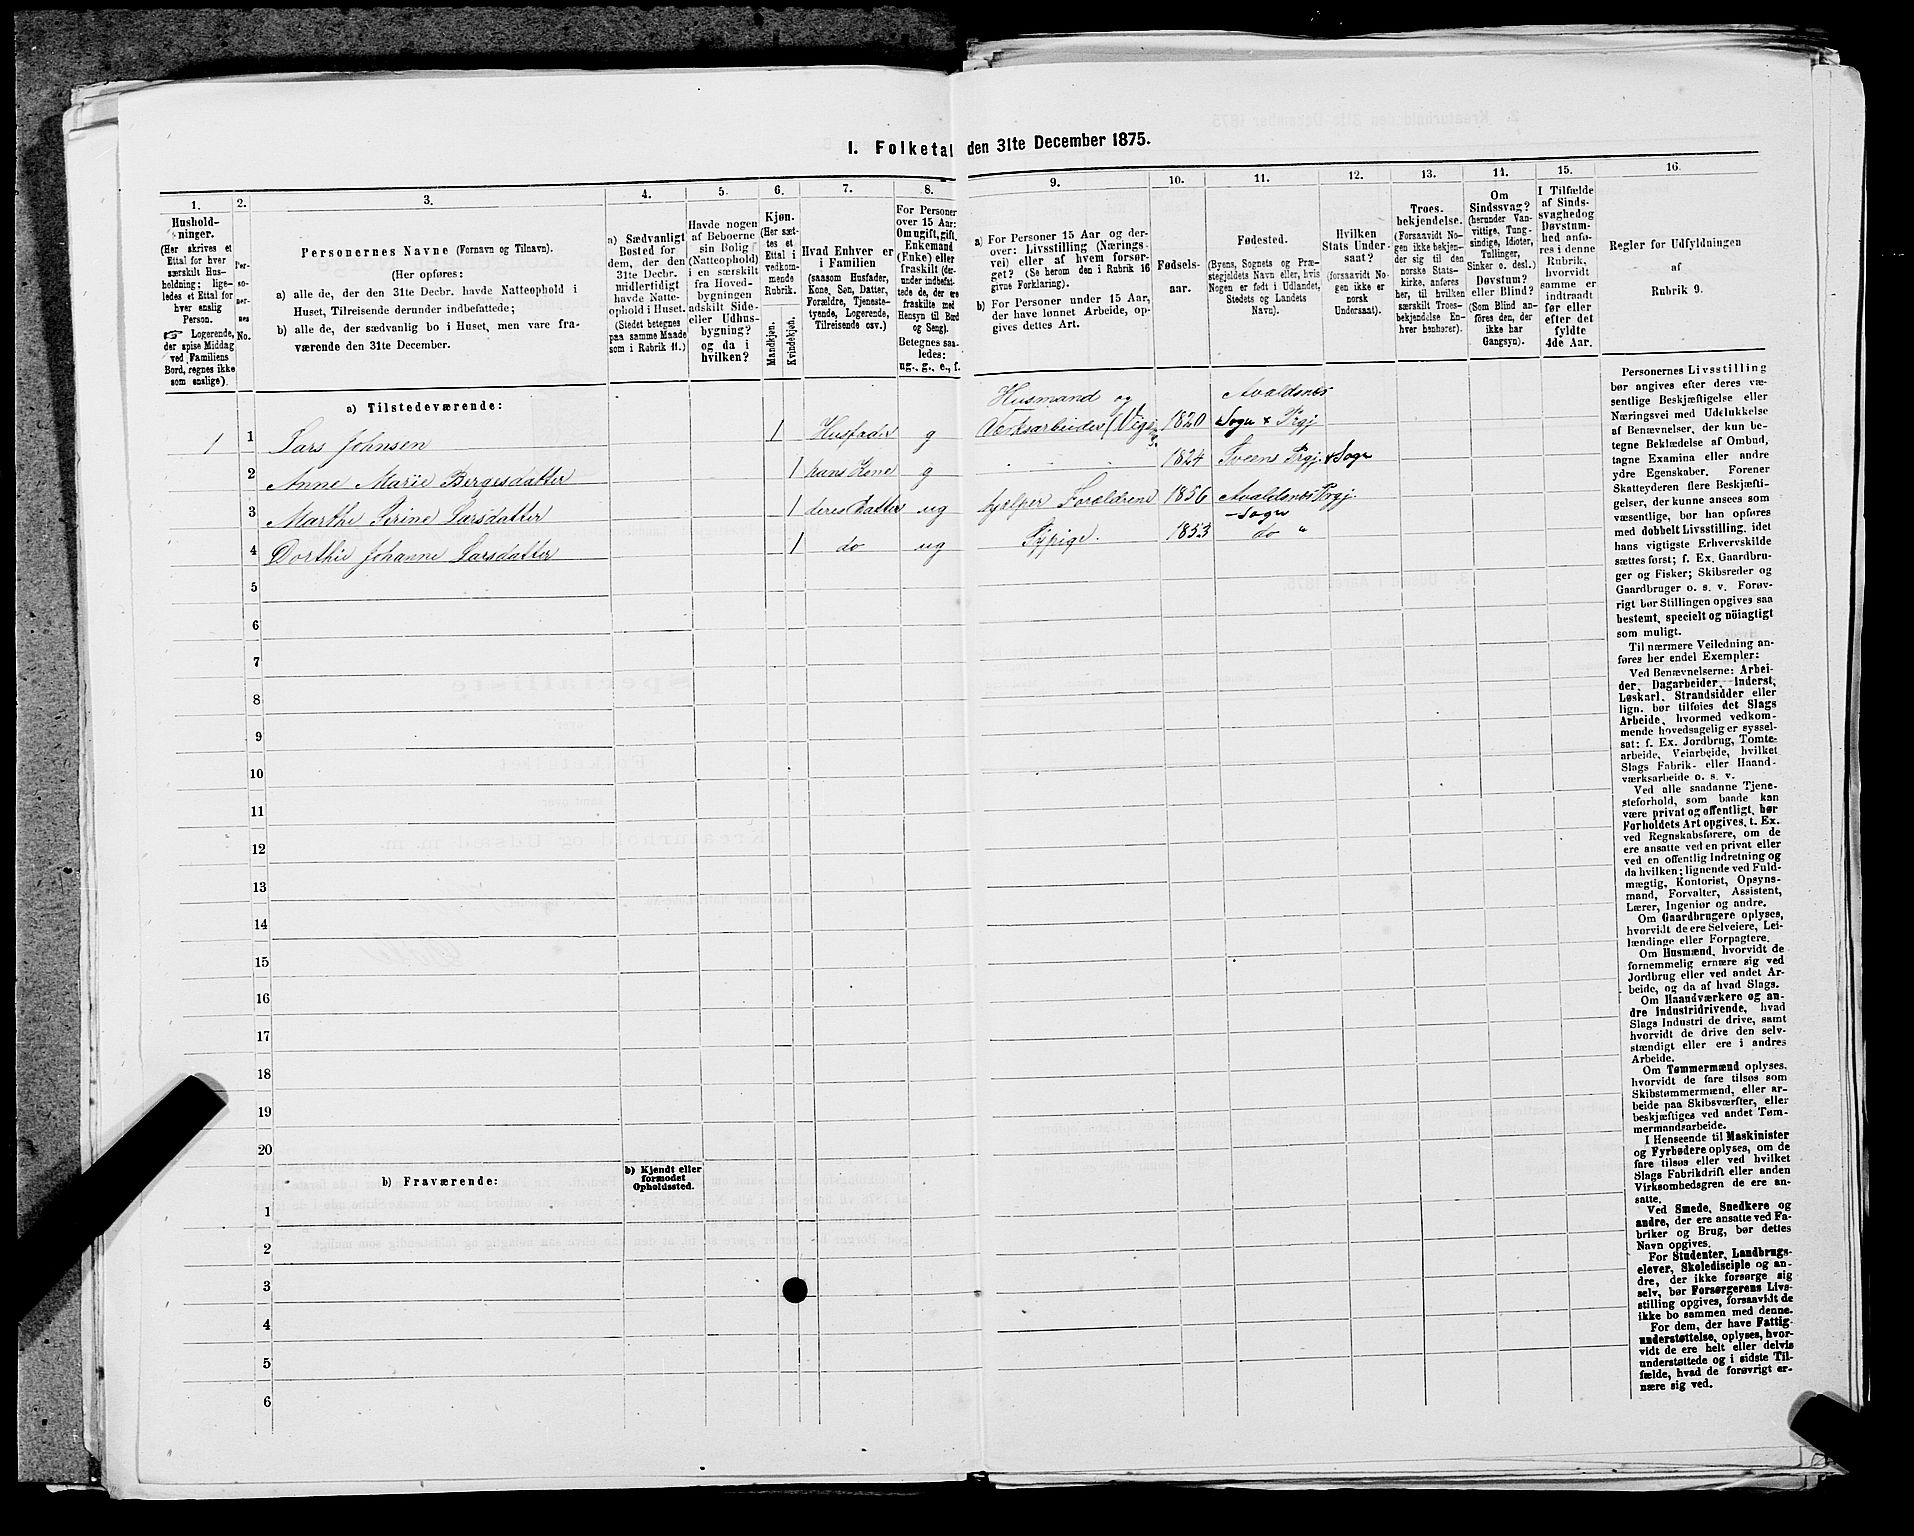 I. Folketal den 31te December 1875.
1.
Hushold-
ninger.
(Her skrives et
Ettal for hver
særskilt Hus-
holdning; lige-
ledes et Ettal for
hver enslig
Person.
☞ Logerende,
der spise Middag
ved Familiens
Bord, regnes ikke
som enslige).
2.
Per-
so-
ner-
nes
No.
3.
Personernes Navne (Fornavn og Tilnavn).
(Her opføres:
a) alle de, der den 31te Decbr. havde Natteophold i
Huset, Tilreisende derunder indbefattede;
b) alle de, der sædvanlig bo i Huset, men vare fra-
værende den 31te December.
4.
a) Sædvanligt
Bosted for
dem, der den
31te Decbr.
midlertidigt
havde Natte-
ophold i Huset.
(Stedet betegnes
paa samme Maade
som i Rubrik 11.)
5.
Havde nogen
af Beboerne
sin Bolig
(Natteophold)
i en særskilt
fra Hoved-
bygningen
adskilt Side-
eller Udhus-
bygning?
og da i
hvilken?
6.
Kjøn.
(Her sæt-
tes et
Ettal i
vedkom-
mende
Rubrik.
Mandkjøn.
Kvindekjøn.
7.
Hvad Enhver er
i Familien
(saasom Husfader,
Kone, Søn, Datter,
Forældre, Tjeneste-
tyende, Logerende,
Tilreisende osv.)
8.
For Personer
over 15 Aar:
Om ugift, gift,
Enkemand
(Enke) eller
fraskilt (der-
under indbefat-
tede de, der ere
fraskilte med
Hensyn til Bord
og Seng).
Betegnes saa-
ledes:
ug., g., e., f.
9.
a) For Personer 15 Aar og der-
over: Livsstilling (Nærings-
vei) eller af hvem forsør-
get? (Se herom den i Rubrik 16
givne Forklaring).
b) For Personer under 15 Aar,
der have lønnet Arbeide, op-
gives dettes Art.
10.
Fødsels-
aar.
11.
Fødested.
(Byens, Sognets og Præ-
stegjeldets Navn eller, hvis
Nogen er født i Udlandet,
Stedets og Landets
Navn).
12.
Hvilken
Stats Under-
saat?
(forsaavidt No-
gen ikke er
norsk
Undersaat).
13.
Troes-
bekjendelse.
(Forsaavidt No-
gen ikke bekjen-
der sig til den
norske Stats-
kirke, anføres
her, til hvilken
særskilt Troes-
bekjendelse En-
hver henhører).
14.
Om
Sindssvag?
(herunder Van-
vittige, Tung-
sindige, Idioter,
Tullinger,
Sinker o. desl.)
Døvstum?
eller Blind?
(Som Blind an-
føres den, der
ikke har
Gangsyn).
15.
I Tilfælde
af Sinds-
svaghed og
Døvstum-
hed anfø-
res i denne
Rubrik,
hvorvidt
samme er
indtraadt
før eller
efter det
fyldte
4de Aar.
16.
Regler for Udfyldningen
af
Rubrik 9.
a) Tilstedeværende:
1 1 Lars Johnsen 1 Husfader g Husmand og
Værksarbeider (Vigs- 1820 Avaldsnes
Sogn & Prgj
2 Anne Marie Bergesdatter 1 hans Kone g 1824 Sveens Prgj & Sogn
3 Marthe Serine Larsdatter 1 deres Datter ug hjelper Forældrene 1856 Avaldsnes Prgj.
- Sogn
4 Dorthe Johanne Larsdatter 1 do ug Sypige. 1853 do "
5
6
7
8
9
10
11
12
13
14
15
16
17
18
19
20
b) Fraværende:
b) Kjendt eller
formodet
Opholdssted.
1
2
3
4
5
6
Personernes Livsstilling
bør angives efter deres væ-
sentlige Beskjæftigelse eller
Næringsvei med Udelukkelse
af Benævnelser, der kun be-
tegne Beklædelse af Ombud,
tagne Examina eller andre
ydre Egenskaber. Forener
Skatteyderen flere Beskjæfti-
gelser, der kunne ansees som
væsentlige, bør han opføres
med dobbelt Livsstilling, idet
hans vigtigste Erhvervskilde
sættes først; f. Ex. Gaardbru-
ger og Fisker; Skibsreder og
Gaardbruger o. s. v. Forøv-
rigt bør Stillingen opgives saa
bestemt, specielt og nöiagtigt
som muligt.
Til nærmere Veiledning an-
føres her endel Exempler:
Ved Benævnelserne: Arbei-
der, Dagarbeider, Inderst,
Løskarl, Strandsidder eller
lign. bør tilføies det Slags
Arbeide, hvormed vedkom-
mende hovedsagelig er syssel-
sat: f. Ex. Jordbrug, Tomte-
arbeide, Veiarbeide, hvilket
Slags Fabrik- eller Haand-
værksarbeide o. s. v.
Ved alle saadanne Tjene-
steforhold, som baade kan
være privat og offentligt, bør
Forholdets Art opgives, t. Ex.
ved Regnskabsførere, om de
ere ansatte ved en privat eller
ved en offentlig Indretning og
da hvilken; lignende ved Fuld-
mægtig, Kontorist, Opsyns-
mand, Forvalter, Assistent,
Lærer, Ingeniør og andre.
Om Gaardbrugere oplyses,
hvorvidt de ere Selveiere, Lei-
lændinge eller Forpagtere.
Om Husmænd, hvorvidt de
fornemmelig ernære sig ved
Jordbrug eller ved andet Ar-
beide, og da af hvad Slags.
Om Haandværkere og an-
dre Industridrivende, hvad
Slags Industri de drive, samt
hvorvidt de drive den selv-
stændigt eller ere i andres
Arbeide.
Om Tømmermænd oplyses,
hvorvidt de fare tilsøs som
Skibstømmermænd, eller ar-
beide paa Skibsværfter, eller
beskjæftiges ved andet Tøm-
mermandsarbeide.
I Henseende til Maskinister
og Fyrbødere oplyses, om de
fare tilsøs eller ved hvilket
Slags Fabrikdrift eller anden
Virksomhedsgren de ere an-
satte.
Ved Smede, Snedkere og
andre, der ere ansatte ved Fa-
briker og Brug, bør dettes
Navn opgives.
For Studenter, Landbrugs-
elever, Skoledisciple og an-
dre, der ikke forsørge sig
selv, bør Forsørgerens Livs-
stilling opgives, forsaavidt de
ikke bo sammen med denne.
For dem, der have Fattig-
understøttelse, oplyses, hvor-
vidt de ere helt eller delvis
understøttede og i sidste Til-
fælde, hvad de forøvrigt er-
nære sig ved.